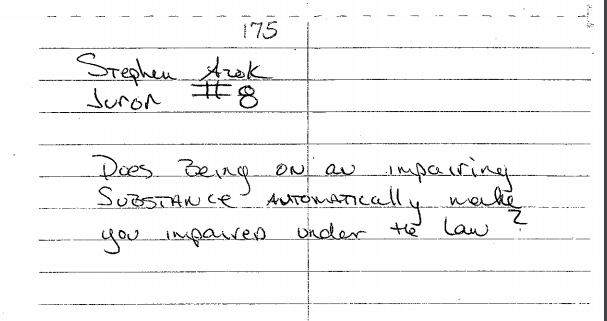 175
Stephen Azok
Juror #8
Does Being on an impairing
SUBSTANCE AUTOMATICAlly make
you impaired under the law?